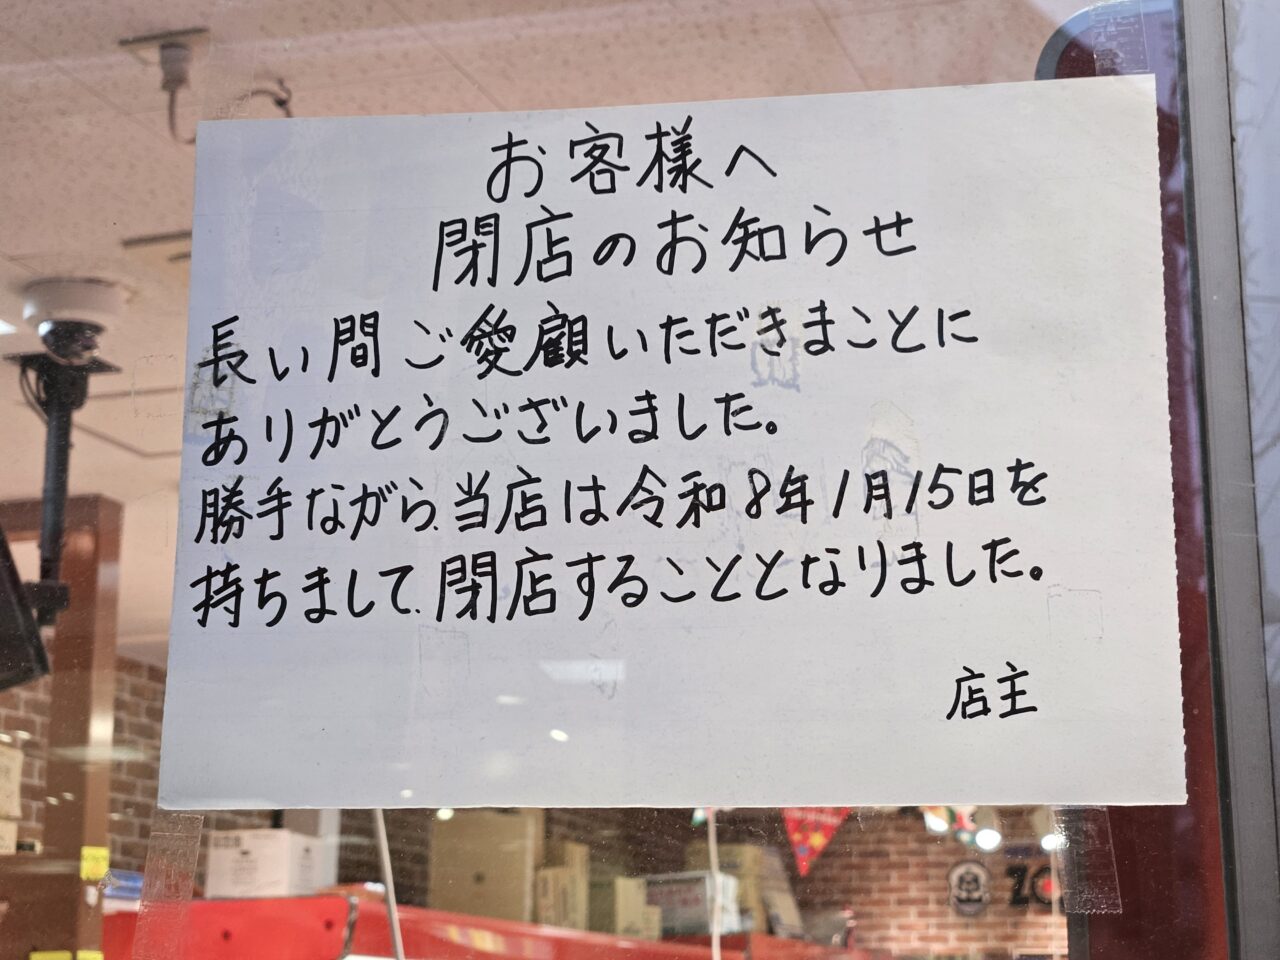 お客様へ
閉店のお知らせ
長い間ご愛顧いただきまことに
ありがとうございました。
勝手ながら、当店は令和8年1月15日を
持ちまして、閉店することとなりました。
店主